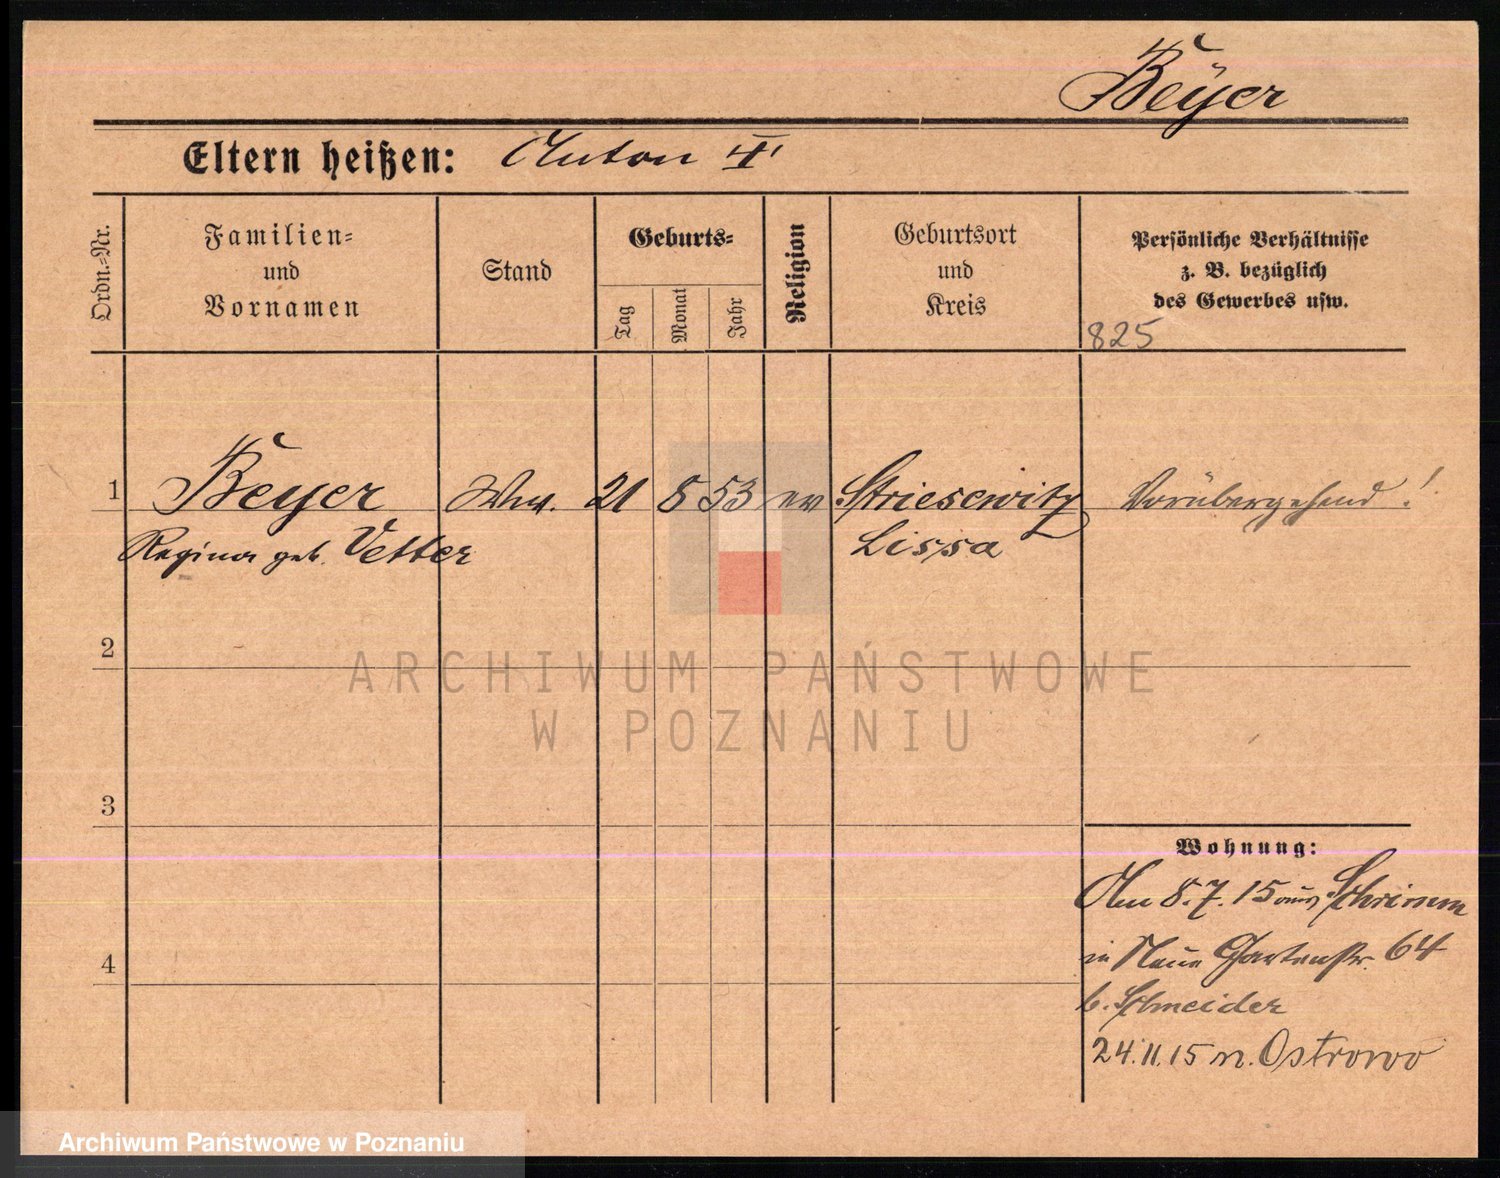 Beÿer
Eltern heißen: Anton
Ordn.-Nr.
Familien-
und
Vornamen
Stand
Geburts-
Tag
Monat
Jahr
Religion
Geburtsort
und
Kreis
Persönliche Verhältnisse
z. B. bezüglich
des Gewerbes usw.
825
1 Beyer Ww. 21 8 53 ev Striesewitz Vorübergehend!
Regina geb. Vetter Lissa
2
ARCHIWUM PAŃSTWOWE
W POZNANIU
3
Wohnung:
Am 8.7.15 aus Schrimm
4 in Neue Gartenstr. 64
b. Schneider
24.11.15 n. Ostrowo
Archiwum Państwowe w Poznaniu